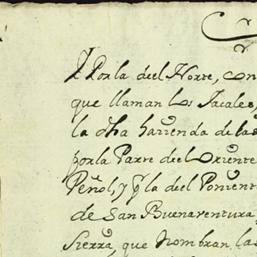 Y Por la del Norte, con
que llaman los Jacales,
la dha hazienda de las
por la Parte del Oriente
Peñol, y pr la del Ponient
de San Buenaventura
Sierra, que nombran las